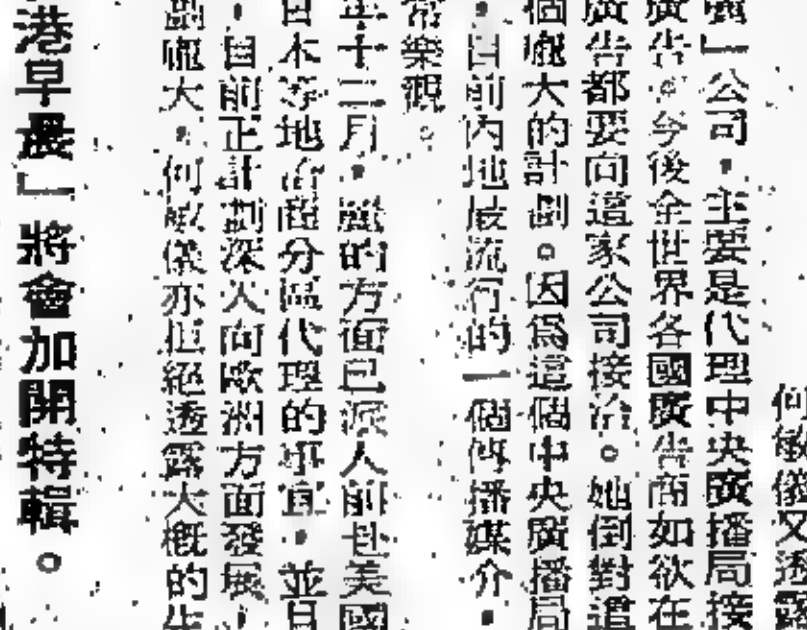 何敏儀又透露
」公司，主要是代理中央廣播局接
廣告。今後全世界各國廣告商如欲在
廣告都要向這家公司接洽。她倒對這
個龐大的計劃。因為這個中央廣播局
，目前內地最流行的一個傳播媒介，
常樂觀。
年十二月，的方面已派人前赴美國
日本等地洽商分區代理的事宜，並且
，目前正計劃深入向歐洲方面發展，
劃龐大，何敏儀亦拒絕透露大概的生
港早晨」將會加開特輯。